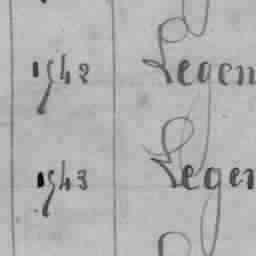 1542 Legen
1543 Legen